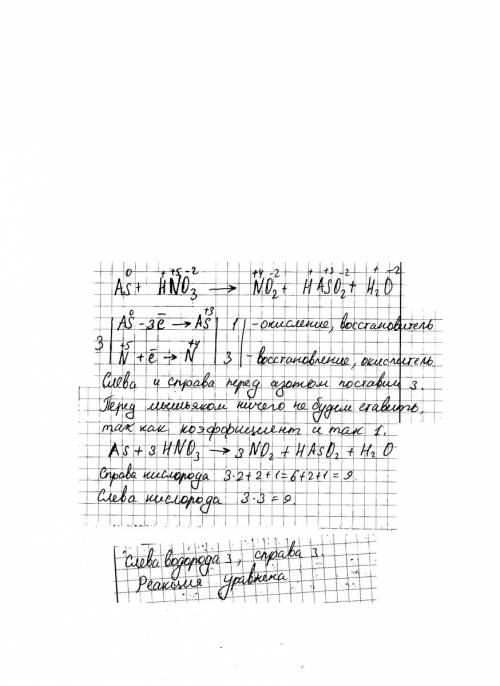 0 + +5 -2 +4 -2 + +3 -2 + -2
As + HNO3 → NO2 + HAsO2 + H2O
3 | As⁰ - 3ē → As⁺³ | 1 | - окисление, восстановитель
N⁺⁵ + ē → N⁺⁴ | 3 | - восстановление, окислитель
Слева и справа перед азотом поставим 3.
Перед мышьяком ничего не будем ставить,
так как коэффициент и так 1.
As + 3HNO3 → 3NO2 + HAsO2 + H2O
Справа кислорода 3·2+2+1=6+2+1=9.
Слева кислорода 3·3=9.
Слева водорода 3, справа 3.
Реакция уравнена